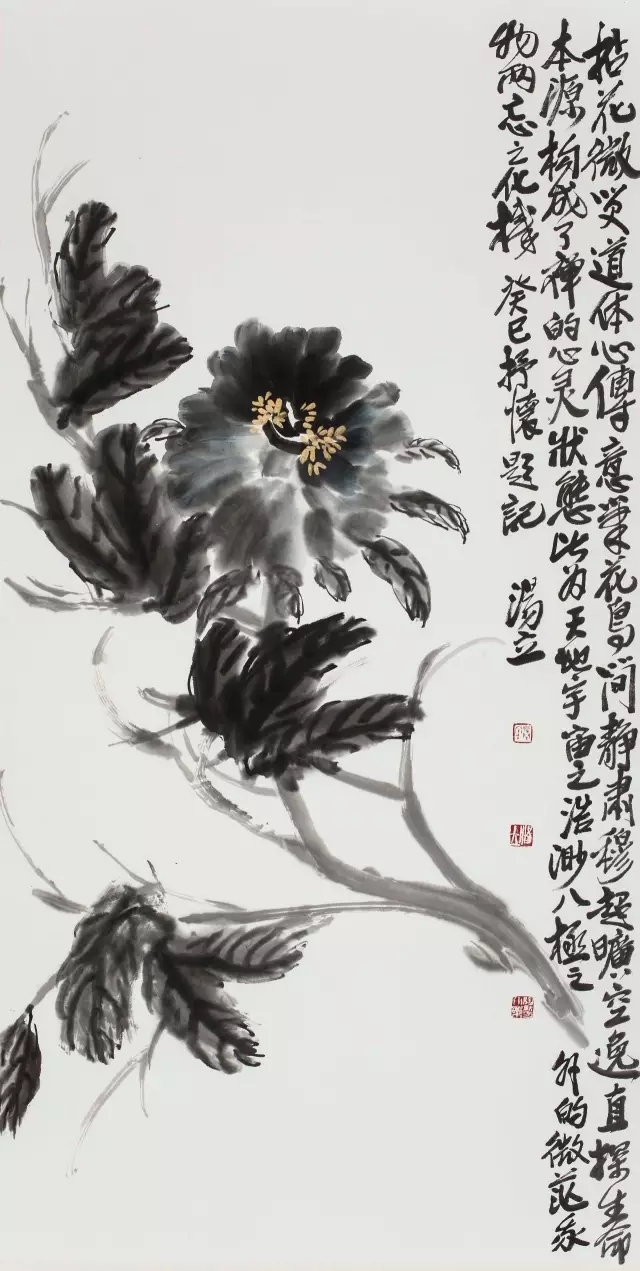 拈花微笑道体心傳意笔花鳥简静肃穆超曠空逸直探生命
本源构成了禅的心灵狀態此为天地宇宙之浩渺八極之外的微茫我
物兩忘之化機 癸巳抒懷題記 湯立